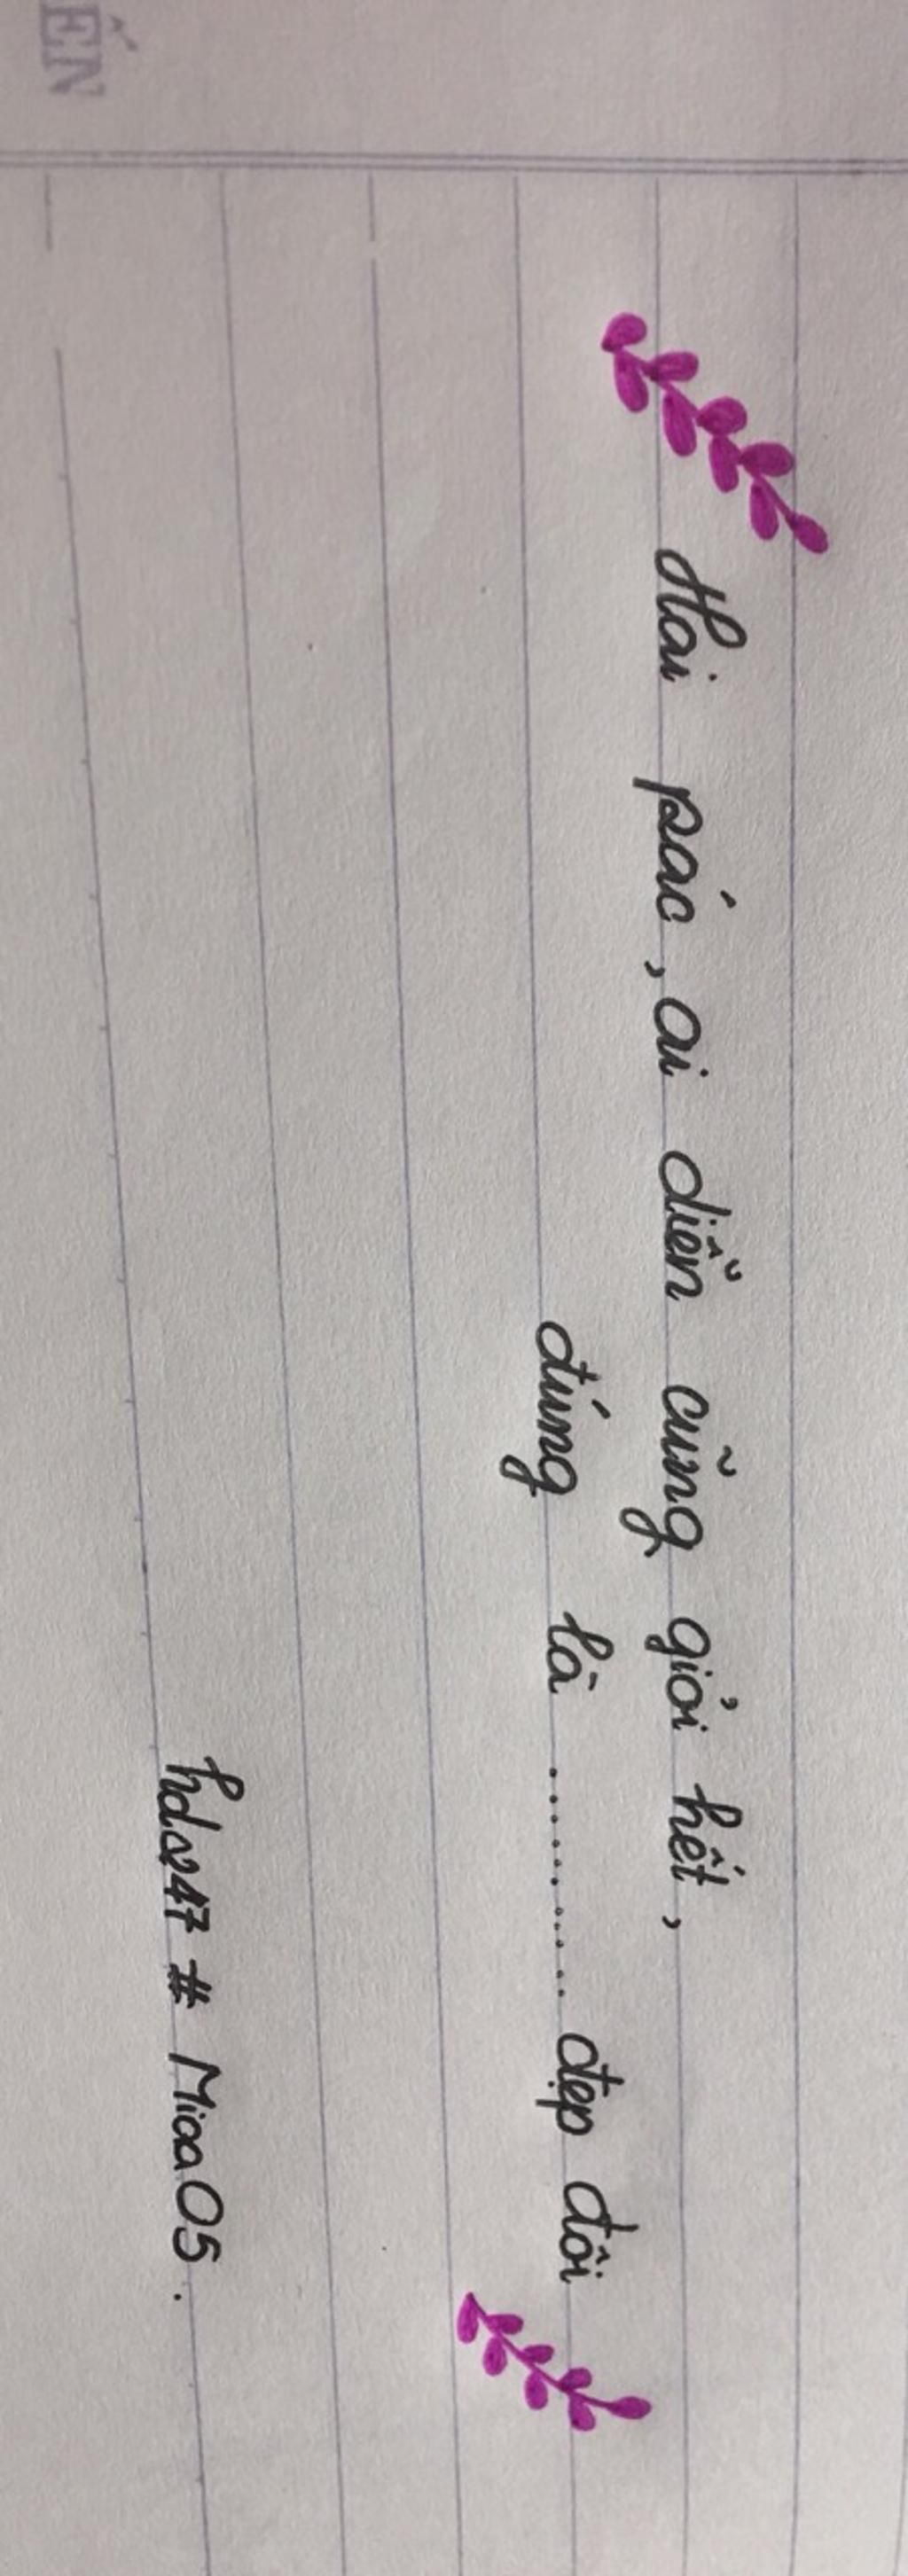 Hai pác, ai diễn cũng giỏi hết,
đúng là ............ đẹp đôi
hds247 # Miaa05.
ẾN